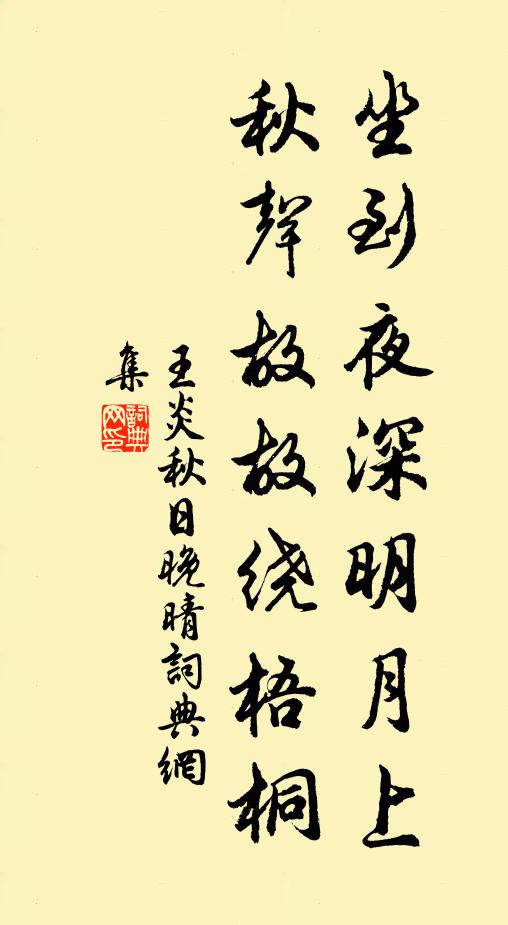 坐到夜深明月上
秋聲故故绕梧桐
王炎秋日晚晴詞典網
集
詞典网印